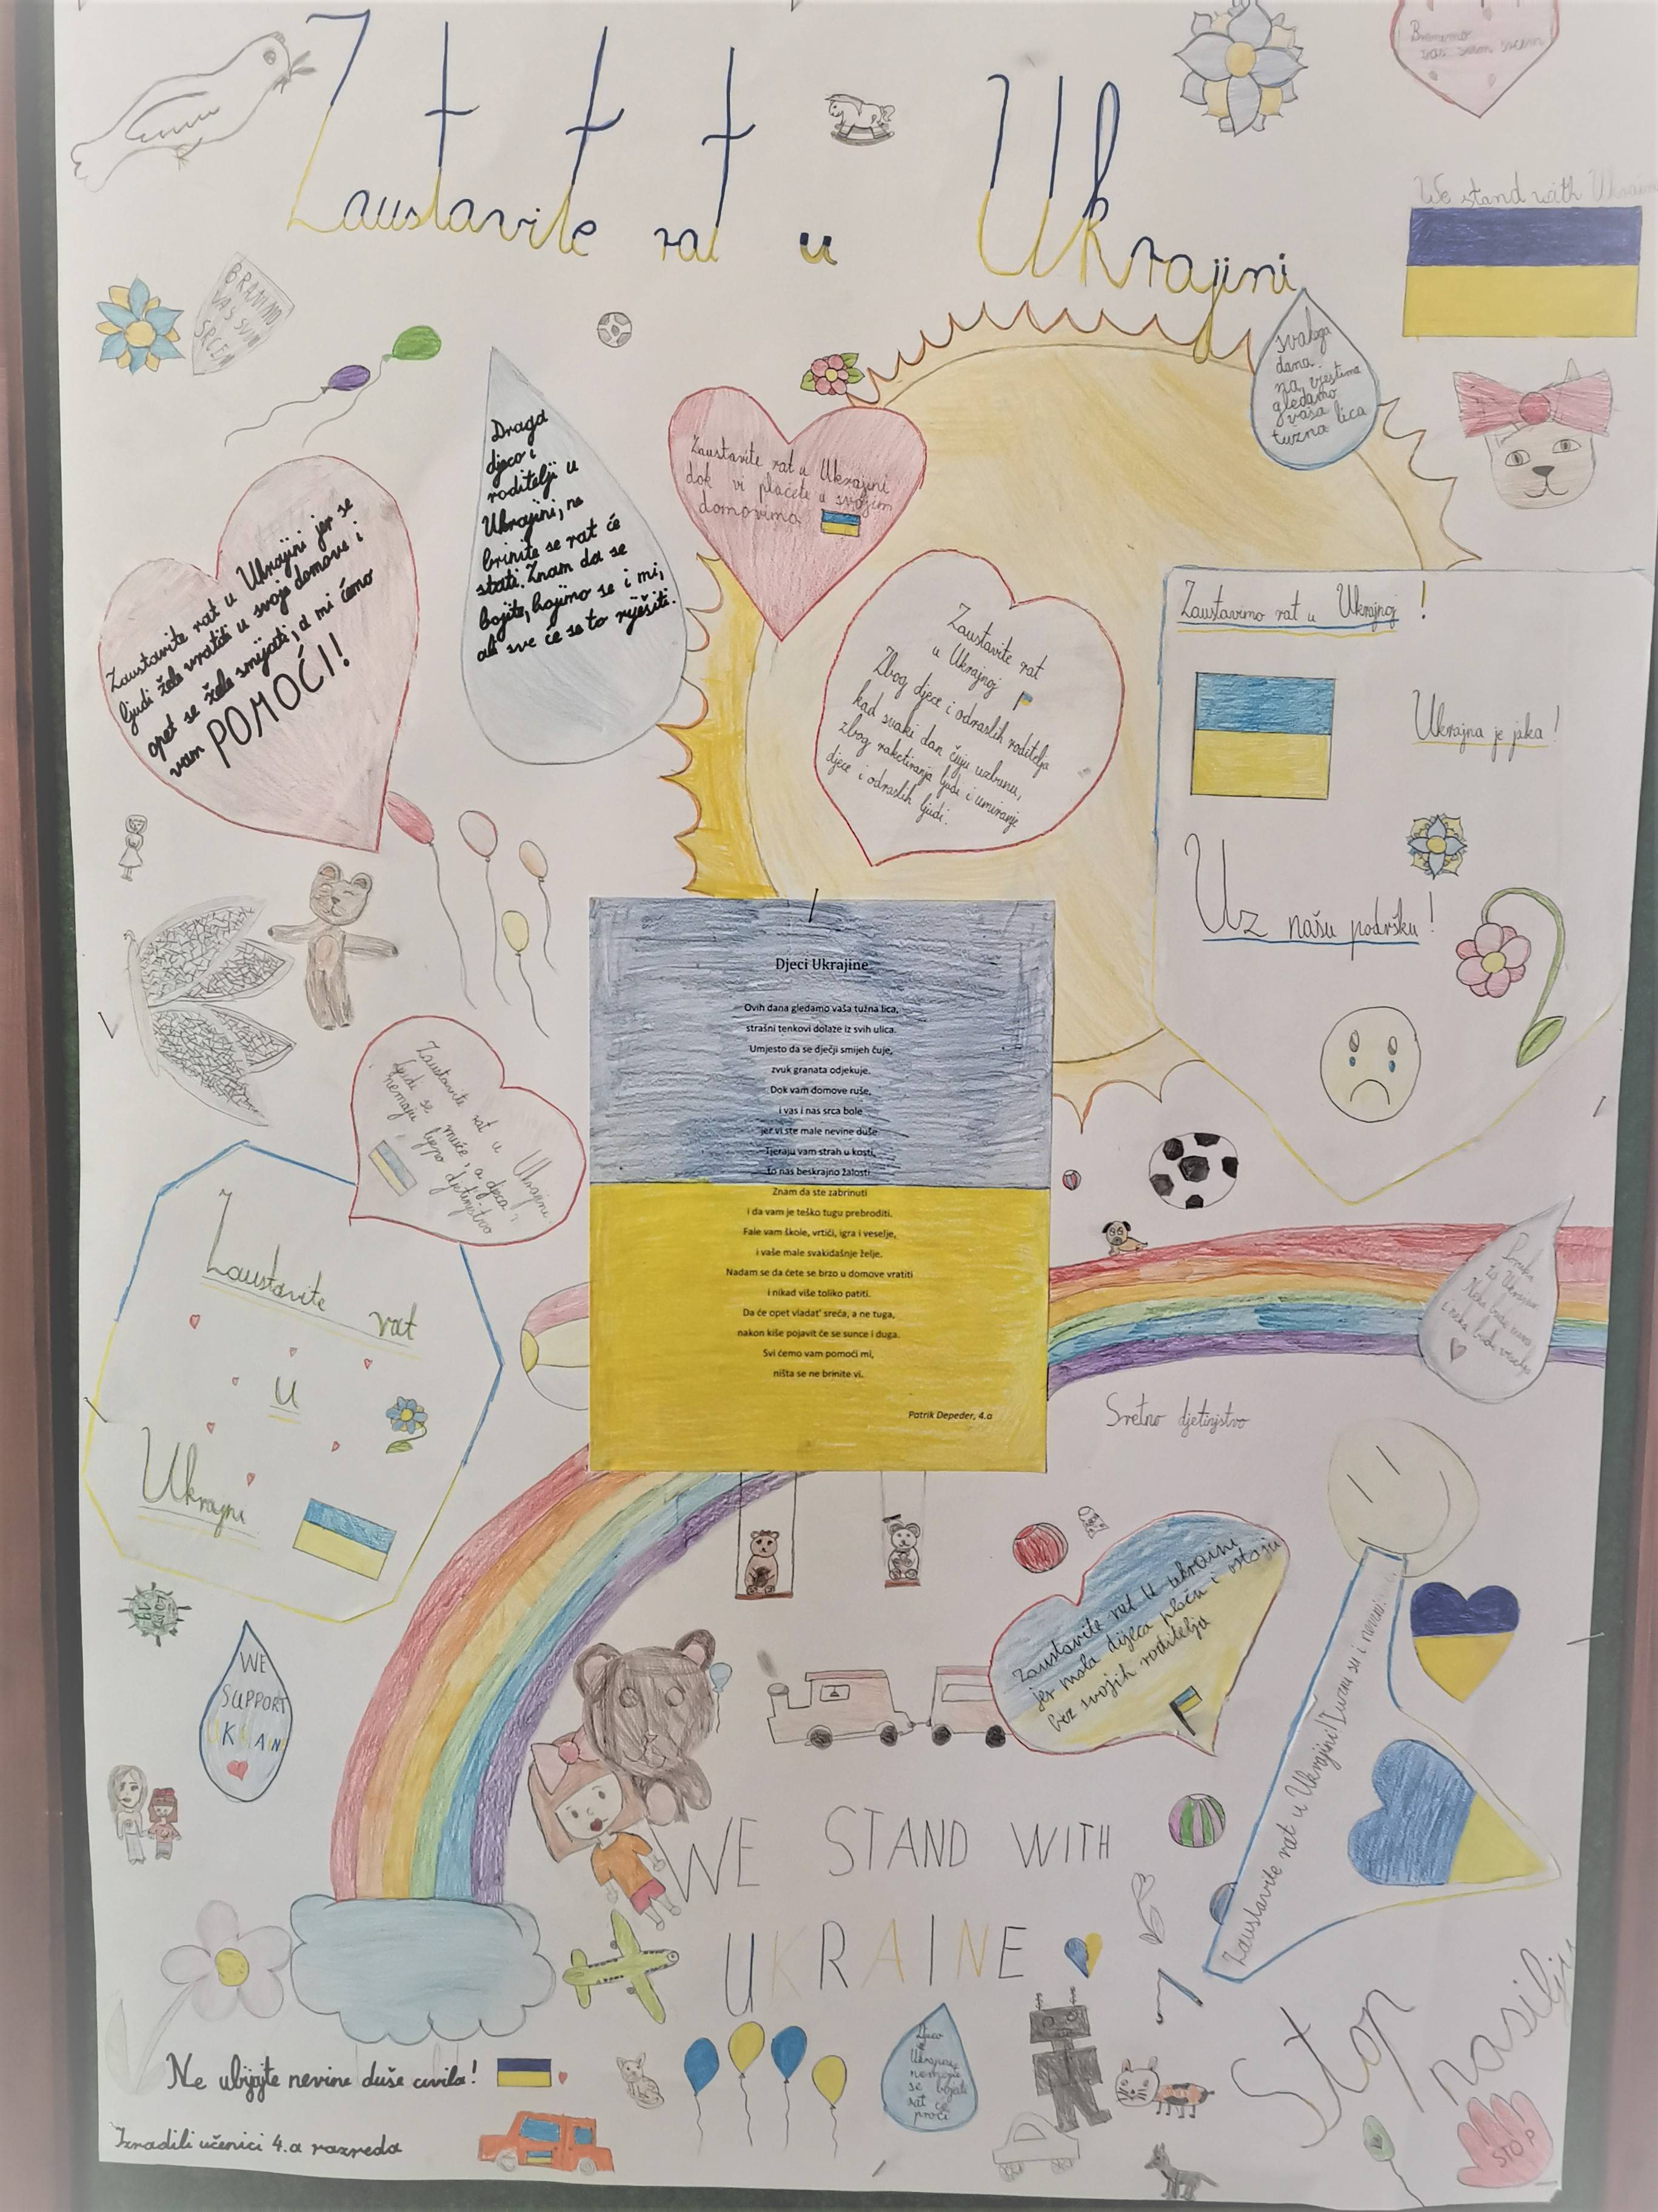 Zaustavite rat u Ukrajini
Branimo
vas svim srcem
We stand with Ukraine
BRANIMO
VAS SVIM
SRCEM
svakoga
dana
na vjestima
gledamo
vaša
tuzna lica
Draga
djeco i
roditelji u
Ukrajini, ne
brinite se rat će
stati. Znam da se
bojite, bojimo se i mi,
ali sve će se to riješiti.
Zaustavite rat u Ukrajini
dok vi plačete u svojim
domovima
Zaustavite rat u Ukrajini jer se
ljudi žele vratiti u svoje domove i
opet se žele smijati, a mi ćemo
vam POMOĆI!
Zaustavite rat
u Ukrajnoj
Zbog djece i odraslih roditelja
kad svaki dan čuju uzbunu,
zbog raketiranja ljudi i umiranje
djece i odraslih ljudi.
Zaustavimo rat u Ukrajnoj!
Ukrajna je jaka!
Uz našu podršku!
Djeci Ukrajine
Ovih dana gledamo vaša tužna lica,
strašni tenkovi dolaze iz svih ulica.
Umjesto da se dječji smijeh čuje,
zvuk granata odjekuje.
Dok vam domove ruše,
i vas i nas srca bole
jer vi ste male nevine duše.
Tjeraju vam strah u kosti,
to nas beskrajno žalosti.
Znam da ste zabrinuti
i da vam je teško tugu prebroditi.
Fale vam škole, vrtići, igra i veselje,
i vaše male svakidašnje želje.
Nadam se da ćete se brzo u domove vratiti
i nikad više toliko patiti.
Da će opet vladat' sreća, a ne tuga,
nakon kiše pojavit će se sunce i duga.
Svi ćemo vam pomoći mi,
ništa se ne brinite vi.
Patrik Depeder, 4.a
Zaustavite rat u Ukrajini
ljudi se muče, a djeca
nemaju lijepo djetinjstvo
Zaustavite rat
u
Ukrajni
Sretno djetinjstvo
WE
SUPPORT
UKRAIN
Zaustavite rat u ukraini
jer mala dijeca plaću i ostaju
bez svojih roditelja
Zaustavite rat u Ukrajini!
WE STAND WITH
UKRAINE
Djeco
u
Ukrajini
nemojte
se bojati
rat će
proći
Stop
nasilju
STOP
Ne ubijajte nevine duše civila!
Izradili učenici 4.a razreda